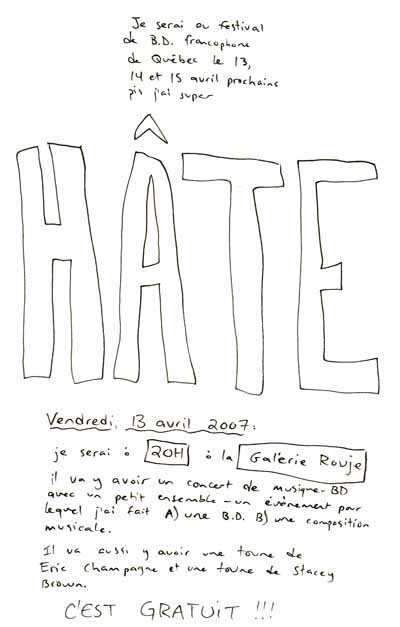 Je serai au festival
de B.D. francophone
de Québec le 13,
14 et 15 avril prochains
pis j'ai super
HÂTE
Vendredi, 13 avril 2007:
je serai à 20H à la Galerie Rouje
il va y avoir un concert de musique-BD
avec un petit ensemble - un évènement pour
lequel j'ai fait A) une B.D. B) une composition
musicale.
Il va aussi y avoir une toune de
Eric Champagne et une toune de Stacey
Brown.
C'EST GRATUIT !!!